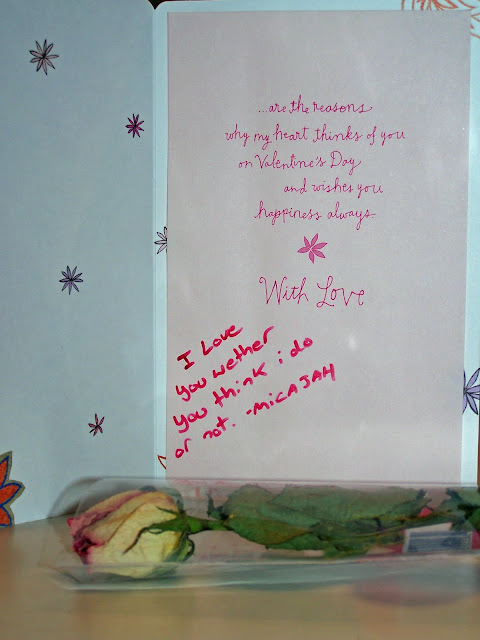 ...are the reasons
why my heart thinks of you
on Valentine's Day
and wishes you
happiness always.
With Love
I Love
you wether
you think i do
or not. -MiCAJAH